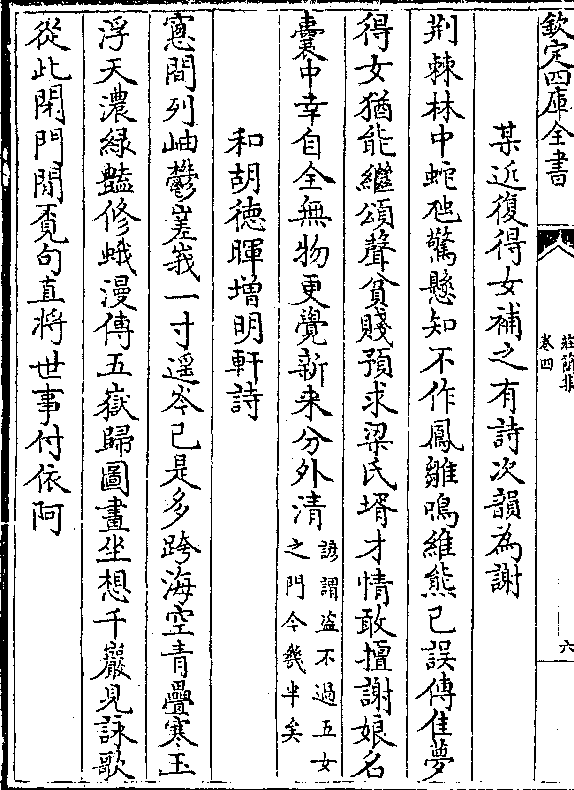 欽定四庫全書
卷四
六
某近復得女補之有詩次韻為謝
荆棘林中蛇虺驚懸知不作鳳雛鳴維熊已誤傳佳夢
得女猶能繼頌聲貧賤預求梁氏壻才情敢擅謝娘名
囊中幸自全無物更覺新来分外清諺謂盗不過五女
之門今幾半矣
和胡徳暉增明軒詩
窓間列岫鬱嵳峩一寸遥岑已是多跨海空青疊寒玉
浮天濃緑豔修蛾漫傳五嶽歸圖畫坐想千巖見詠歌
從此閉門閒覓句直將世事付依阿